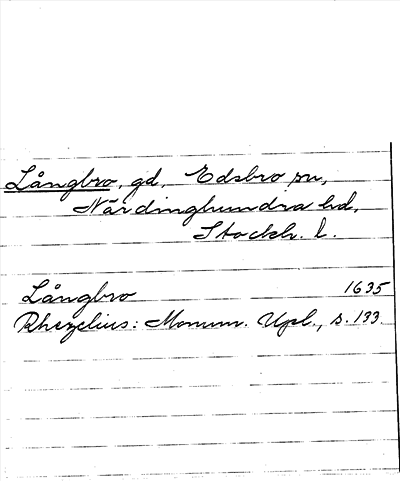 Långbro, gd, Edsbro sn,
Närdinghundra hd,
Stockh. l.
Långbro 1635
Rhezelius: Monum. Upl., s. 133.